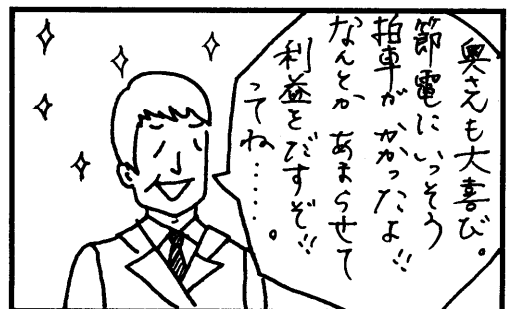 奥さんも大喜び。
節電にいっそう
拍車がかかったよ!!
なんとかあまらせて
利益をだすぞ!!
ってね・・・・・。